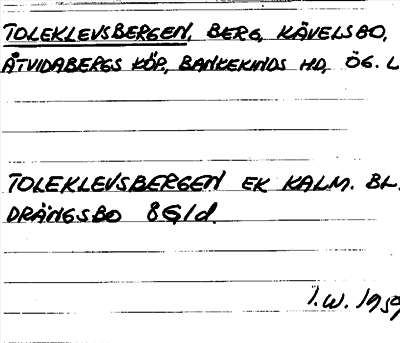 TOLEKLEVSBERGEN, BERG, KÄVELSBO,
ÅTVIDABERGS KÖP, BANKEKINDS HD, ÖG. L
TOLEKLEVSBERGEN EK KALM. BL.
DRÄNGSBO 8G1d.
I.W. 1959